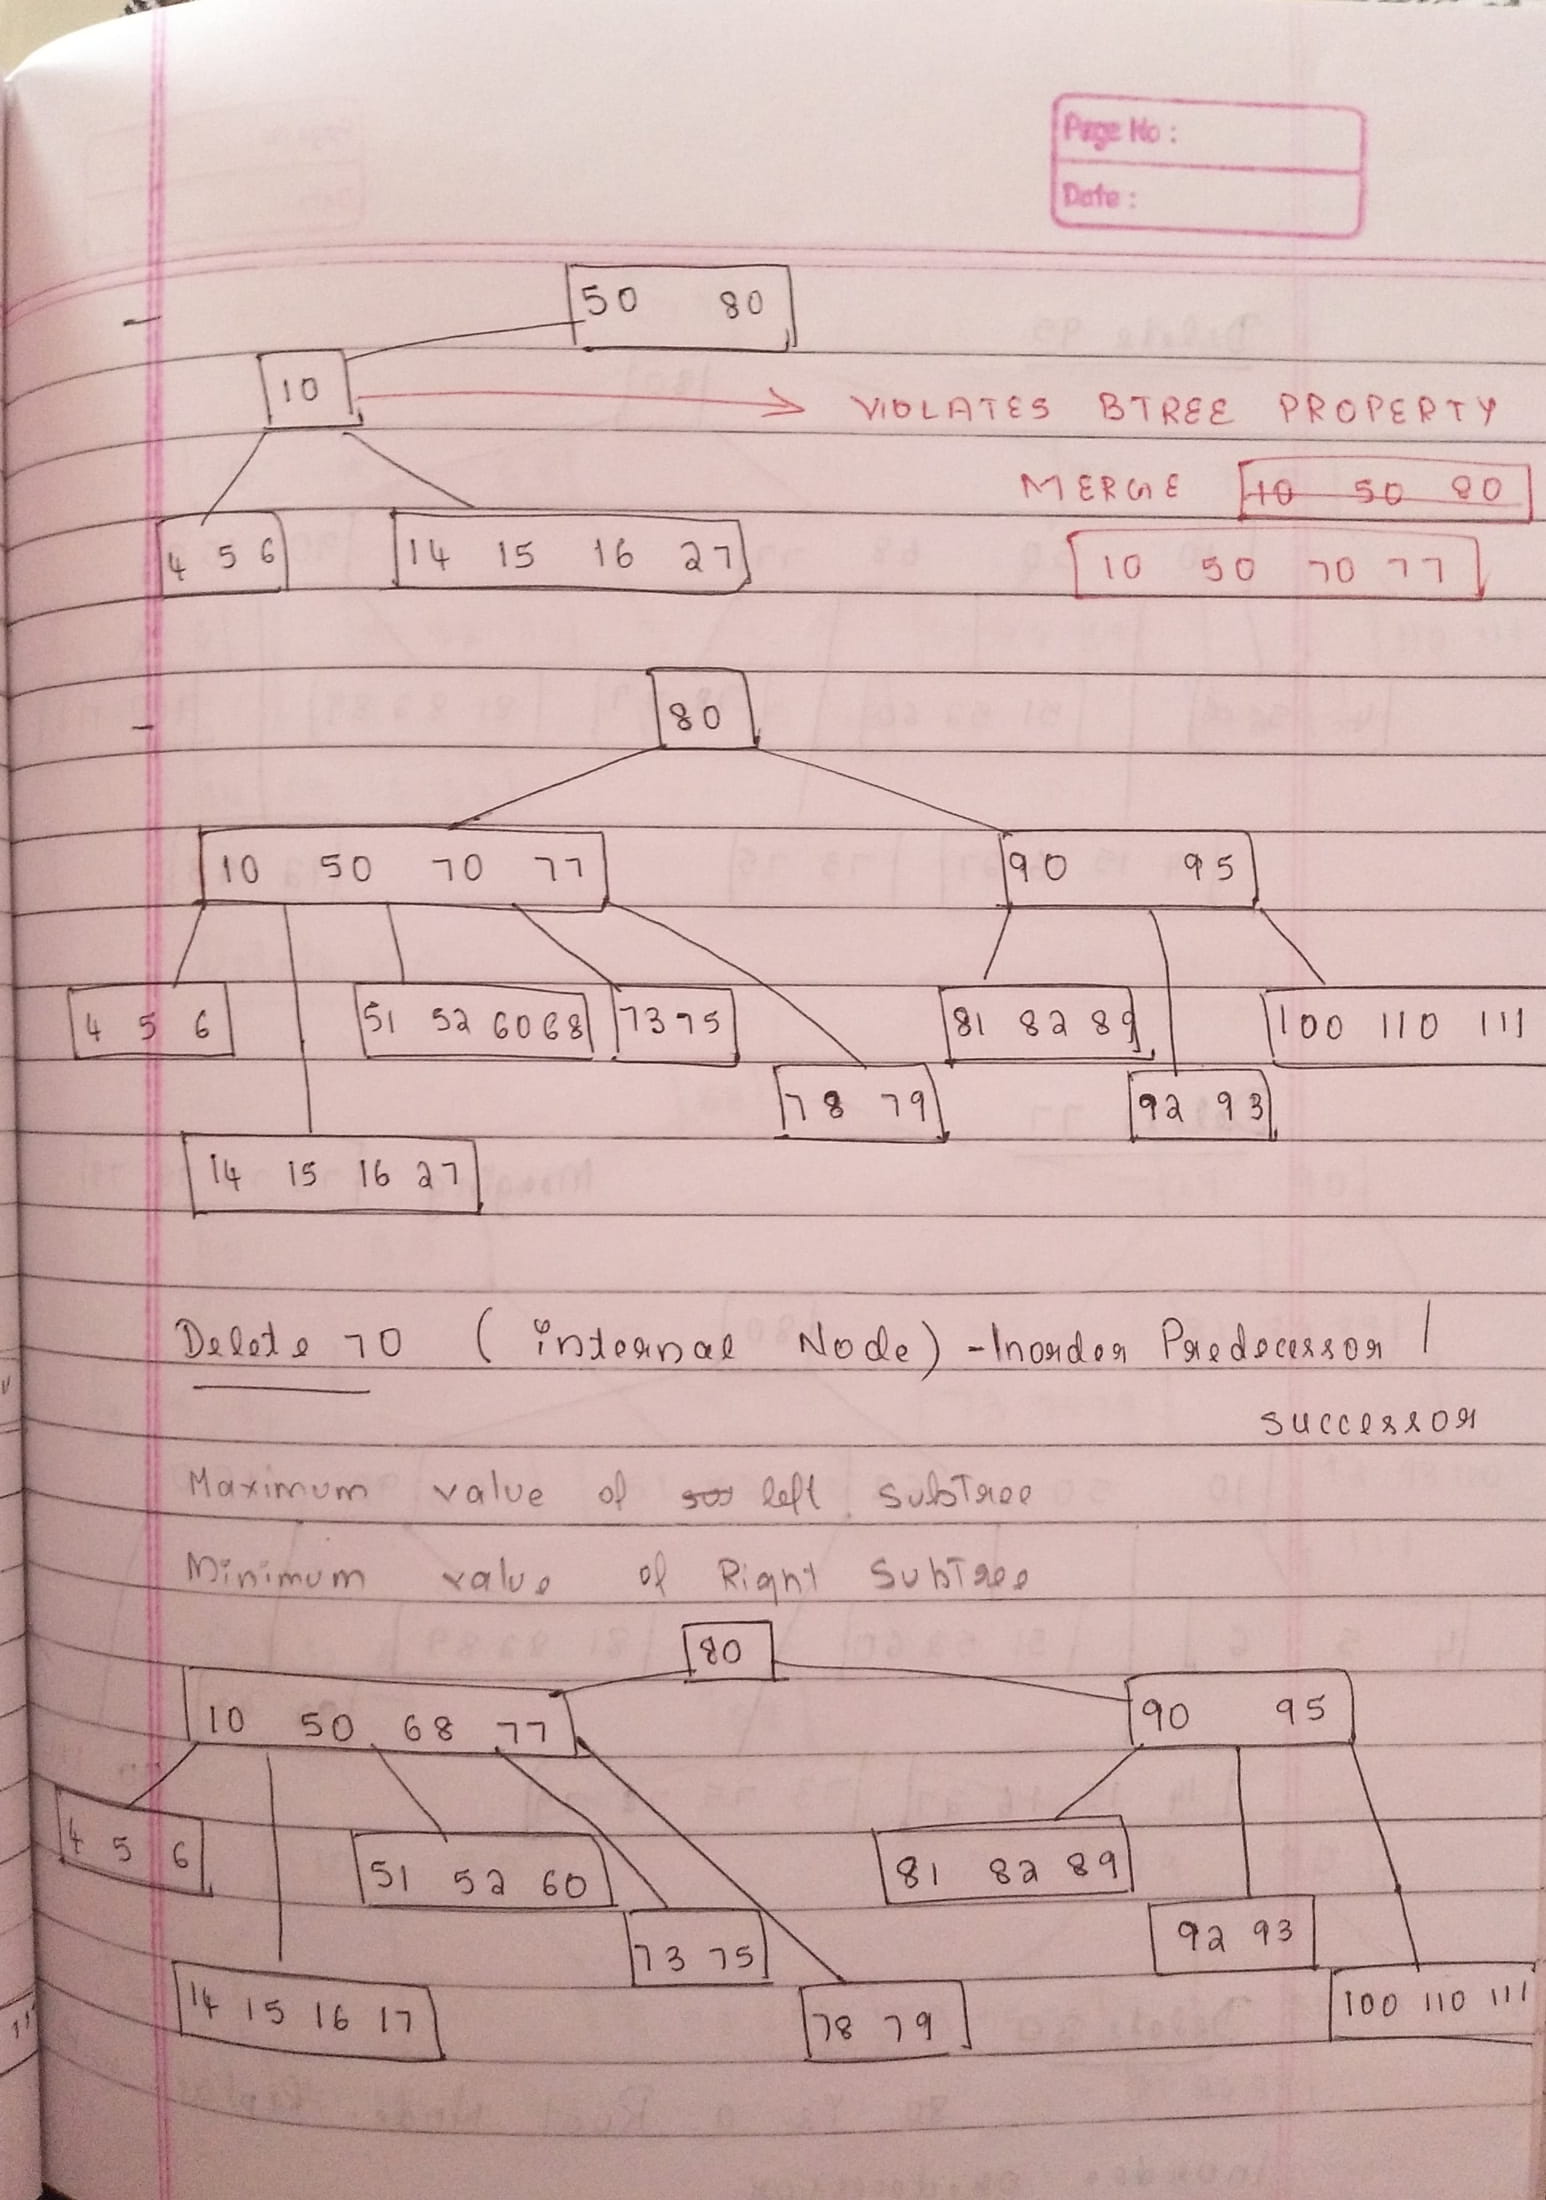 Page No :
Date :
50 80
10 VIOLATES BTREE PROPERTY
MERGE 10 50 80
4 5 6 14 15 16 27 10 50 70 77
80
10 50 70 77 90 95
4 5 6 51 52 60 68 73 75 81 82 89 100 110 111
78 79 92 93
14 15 16 27
Delete 70 ( internal Node) - Inorder Predecessor /
successor
Maximum value of left subTree
Minimum value of Right SubTree
80
10 50 68 77 90 95
4 5 6 51 52 60 81 82 89
73 75 92 93
14 15 16 17 78 79 100 110 111